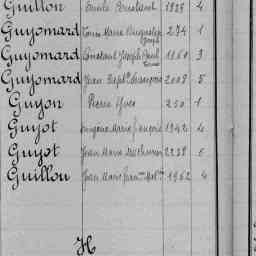 Guillon Emile Constant 1928 4
Guyomard Louis Marie Auguste 274 1
Joseph
Guyomard Constant Joseph Paul 1160 3
Guyomard Jean Bapte François 2008 5
Guyon Pierre Yves 250 1
Guyot Eugène Marie François 1942 4
Guyot Jean Marie Mathurin 2238 5
Guillou Jean Marie 1962 4
H